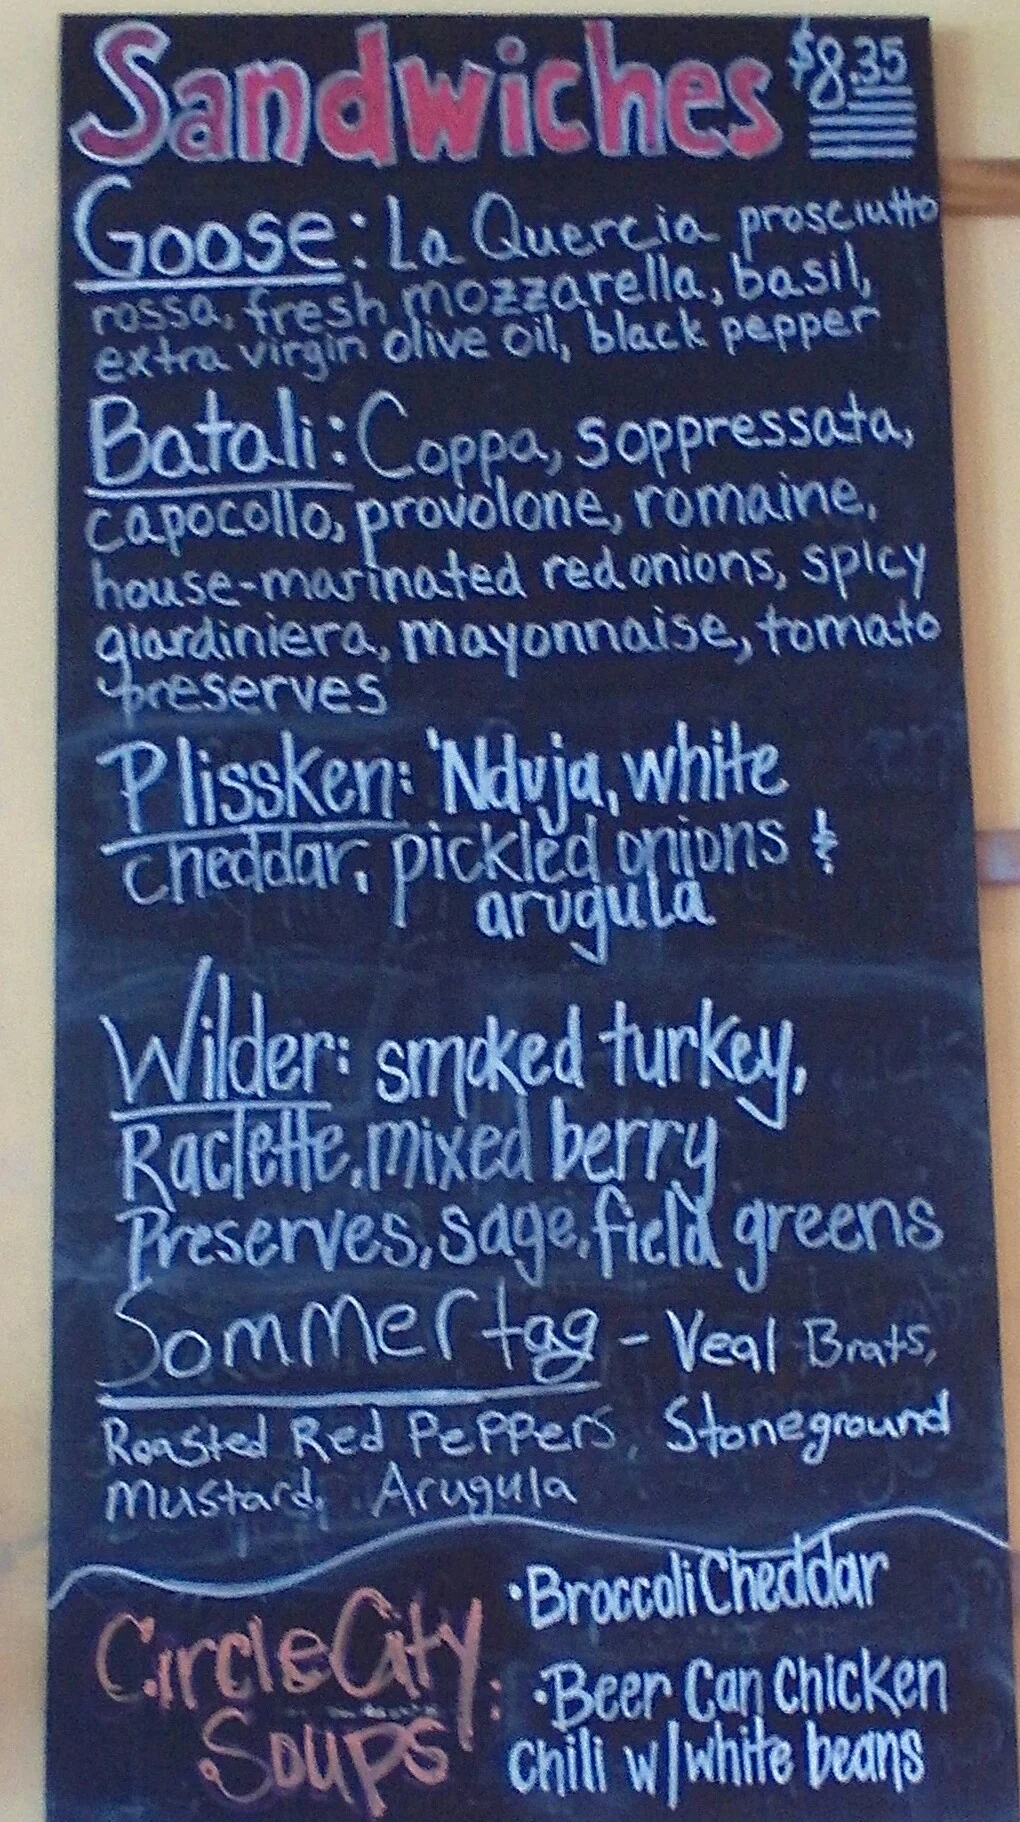 Sandwiches $8.35
Goose: La Quercia prosciutto
rossa, fresh mozzarella, basil,
extra virgin olive oil, black pepper
Batali: Coppa, soppressata,
capocollo, provolone, romaine,
house-marinated red onions, spicy
giardiniera, mayonnaise, tomato
preserves
Plissken: 'Nduja, white
cheddar, pickled onions &
arugula
Wilder: smoked turkey,
Raclette, mixed berry
Preserves, sage, field greens
Sommertag - Veal Brats,
Roasted Red Peppers, Stoneground
Mustard, Arugula
Circle City
Soups:
•Broccoli Cheddar
•Beer Can Chicken
Chili w/white beans